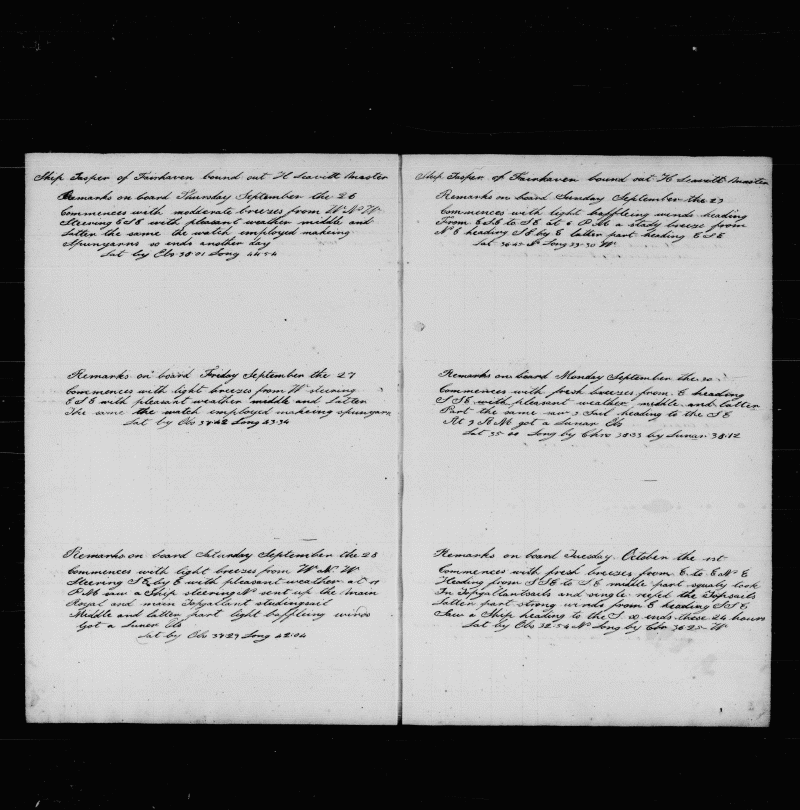 Ship Jasper of Fairhaven bound out H Leavitt Master
Remarks on board Thursday September the 26
Commences with moderate breezes from W N W
Steering E S E with pleasant weather middle and
Latter the same the watch employed makeing
Spunyarns so ends another day
Lat by Obs 38-01 Long 44-54
Remarks on board Friday September the 27
Commences with light breezes from W steering
E S E with pleasant weather middle and Latter
The same the watch employed makeing spunyarn
Lat by Obs 37-42 Long 43-34
Remarks on board Saturday September the 28
Commences with light breezes from W N W
Steering S E by E with pleasant weather at
P M saw a Ship steering N sent up the Main
Royal and main Topgallant studingsail
Middle and latter part light baffleing winds
Got a Luner Obs
Lat by Obs 37-29 Long 42-04
Ship Jasper of Fairhaven bound out H Leavitt Master
Remarks on board Sunday September the 29
Commences with light baffleing winds heading
From E S E to S E at 6 P M a stady breeze from
N E heading S E by E latter part heading E S E
Lat 36-47 N Long 39-30 W
Remarks on board Monday September the 30
Commences with fresh breezes from E heading
S S E with pleasant weather middle and latter
Part the same saw 3 Sail heading to the S E
At 9 A M got a Lunar Obs
Lat 35-00 Long by Chro 38-33 by Lunar 38-12
Remarks on board Tuesday October the 1st
Commences with fresh breezes from E to E N E
Heading from S S E to S E middle part squaly took
In Topgallantsails and single reefd the Topsails
Latter part strong winds from E heading S S E
Saw a Ship heading to the S so ends these 24 hours
Lat by Obs 32-54 N Long by Chr 36-25 W